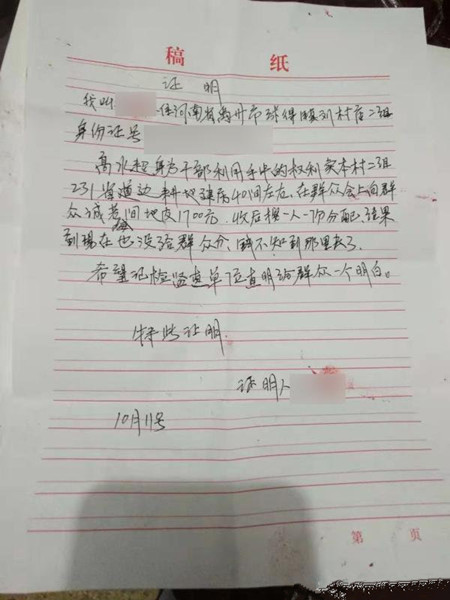 稿 纸
证 明
我叫 住河南省禹州市 镇刘村店二组
身份证号
高水超身为干部利用手中的权利卖本村二组
231省道边耕地 房40间左右,在群众会上向群
众承若每间地皮1700元,收后按一人一份分配,结果
到现在也没给群众分,钱不知到那里去了,
希望纪检监查单位查明给群众一个明白。
特此证明.
证明人
10月11号
第 页